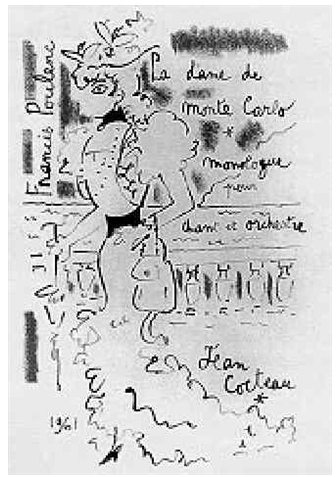 Francis Poulenc
La dame de
monte Carlo
*
monologue
pour
chant et orchestre
Jean
Cocteau
*
1961